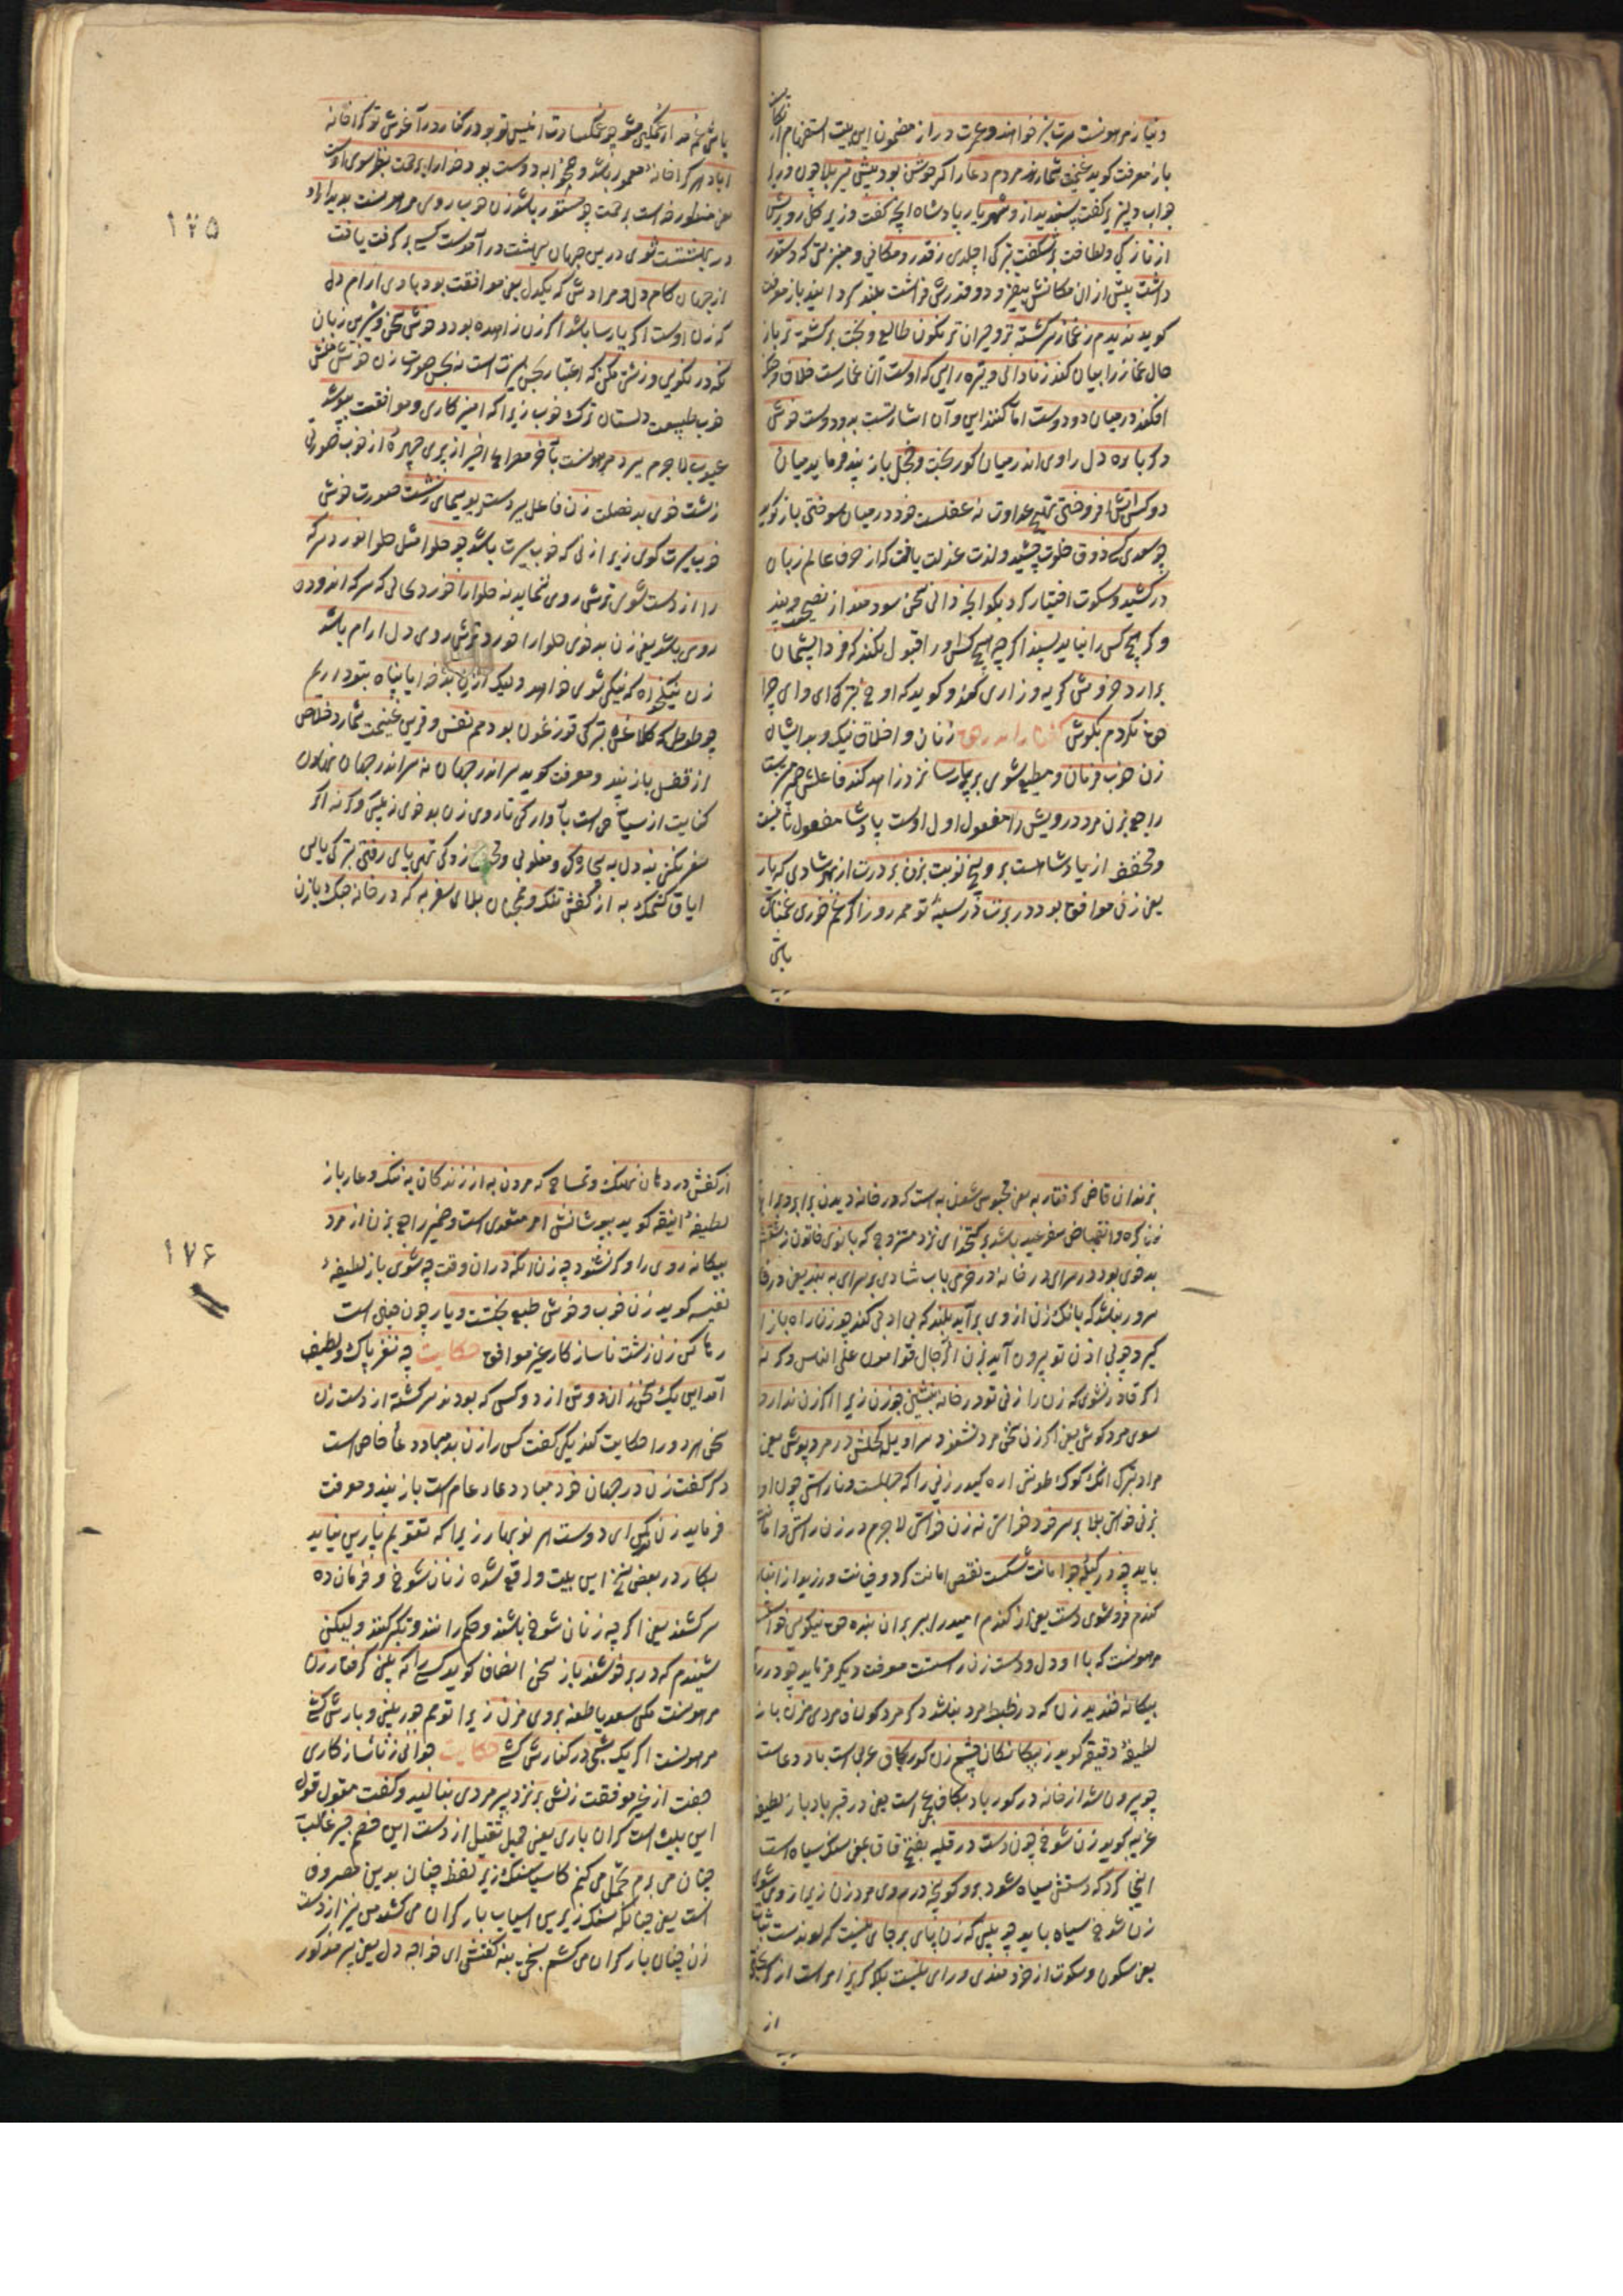 باز معرفت کوید غنیمت شمارند مردم دعا را که جوشن بود پیش تیر بلا چون وزیر
جواب دلپذیر کفت پسندید ازو شهریار پادشاه آنچه کفت وزیر کل رویش
از تازکی و لطافت بشکفت
داشت پیش از ان مکانش بیفزود و قدرش فراشت بلند کردانید باز معرفت
کوید ندیدم ز غماز سرکشته تر و حیران تر نکون طالع و بخت برکشته تر باز
حال غماز را بیان کند ز نادانی و تیره رایی که اوست آن غمازست خلاف
افکند در میان دو دوست اما کنند این و آن اشارتست بدو دوست خوش
دکر باره دل وی اندر میان کور بخت و خجل باز پند فرماید میان
دو کس آتش افروختن عداوت نه عقلست خود در میان سوختن باز کوید
چو سعدی که ذوق خلوت چشید و لذت عزلت یافت که از حرف عالم زبان
درکشید و سکوت اختیار کرد بکو آنچه دانی سخن سودمند از نصیحت و پند
وکر هیچ کس را نیاید پسند اکر چه هیچ کس او را قبول نکند که فردا پشیمان
برآرد خروش کریه و زاری کند و کوید که اوخ ای وای چرا
حق نکردم بکوش کفتار اندر حق زنان و اخلاق نیک و بد ایشان
زن خوب فرمان و مطیع شوی پارسا
راجع بزن مرد درویش را مفعول اول اوست پادشا مفعول ثانیست
و مخفف از پادشاهست برو پنج نوبت بزن بر درت از شادی که یار
یعنی زن موافق بود در برت در سینهٔ تو همه روز اکر غم خوری غمناک
باشی
۱۷۵
باشی غم مدار غمکین مشو چو شب غمکسارت انیس تو بود در کنار در آغوش تو کرا خانه
آباد هر کرا خانه معمور باشد و همخوابه دوست بود خدا را برحمت نظر سوی اوست
یعنی منظور خداست برحمت چو مستور باشد زن خوب روی مرهونست بدیدار او
در بهشتست شوی درین جهان بهشت در آمدست کسی برکرفت یافت
از جهان کام دل و مرادش که یکدل یعنی موافقت بود با وی ارام دل
که زن اوست اکر پارسا باشد اکر زن زاهده بود و خوش سخن و شیرین زبان
نکه در نکویی و زشتی مکن که اعتبار بحسن سیرت است نه بحسن صورت زن خوش منش
خوب طبیعت دلستان تر که خوب زیرا که آمیزکاری و موافقت بپوشد
عیوب لاجرم ببرد مرهونست از پری چهرهٔ از خوب صورتی
زشت خوی بد خصلت زن فاعل ببردست بد سیمای زشت صورت خوش
خوب سیرت کوی زیرا زنی که خوب سیرت باشد چو حلوا مثل حلوا خورد سرکه
را از دست شوی ترش روی ننماید نه حلوا را خورد بحالی که سرکه اندوده
روی باشد یعنی زن بد خوی حلوا را خورد ترش روی دل ارام باشد
زن نیکخواه که نیکی شوی خواهد ولیک از زن بد خدایا پناه بتو داریم
چو طوطی که کلاغش بود هم نفس و قرین غنیمت شمارد خلاص
از قفس باز پند و معرفت کوید سر اندر جهان نه سر اندر جهان نهادن
کنایت از سیاحت است بآوارکی تا روی زن بد خوی نه بینی وکر نه اکر
سفر نکنی بنه دل به بیچارکی و مغلوبی تهی پای رفتن
به از کفش تنک بلای سفر به که در خانه جنک با زن
بزندان قاضی کرفتار به یعنی محبوس شدن به است که در خانه دیدن بر ابرو
کره و انقباض سفر عید باشد بر کتخدای نزد متزوج که بانوی خاتون زشتش
بد خوی بود در سرای در خانه در خرمی باب شادی بر سرای به بند یعنی در خا
سرور نباشد که بانک زن از وی برآید بلند که بی ادبی کند چو زن راه بازار
کیرد چو بی اذن تو بیرون آید بزن الرجال قوامون علی النساء وکر نه
اکر قادر نشوی که زن را زنی تو در خانه بنشین چو زن زیرا اکر زن ندارد
سوی مرد کوش یعنی اکر زن سخن مرد نشنود سراویل کحلیش در مرد پوش یعنی
زنی را که جهلست و ناراستی
بلا بر سر خود خواستی نه زن خواستی لاجرم در زن راستی و امانت
باید چو در کیلهٔ جو امانت شکست نقص امانت کرد و خیانت ورزید از انبار
کندم فرو شوی دست یعنی از کندم امید را ببر بران بنده حق نیکویی خواست
مرهونست که با او دل و دست زن راستست معرفت دیکر فرماید چو در روی
بیکانه خندید زن که در ضبط مرد نباشد دکر مرد کو لاف مردی مزن باز
لطیفهٔ دقیقه کوید ز بیکانکان چشم زن کور بکاف عربی است باد دعاست
چو بیرون شد از خانه در کور باد بکاف عجمی است یعنی در قبر باد باز لطیفهٔ
غریبه کوید زن شوخ چون دست در قلیه بفتح قاف یعنی سنک سیاه است
انجا کرد که دستش سیاه شود برو کو پنجه در روی مرد زن زیرا روی شوی
زن شوخ سیاه باید چو بینی که زن پای بر جای نیست که او ندارد ثبات
یعنی سکون و سکوت از خردمندی و رای نیست بلکه کریز امر است از کریختن
از
۱۷۶
از کفش در دهان نهنک و تمساح که مردن به از زندکان به ننک و عار باز
لطیفهٔ انیقه کوید بپوشانش امر متعدی است و ضمیر راجع بزن از مرد
بیکانه روی را وکر نشنود چه زن انکه دران وقت چه شوی باز لطیفهٔ
نفیسه کوید زن خوب و خوش طبع بختست و یار چون چنین است
رها کن زن زشت ناسازکار غیر موافق حکایت چه نغز پاک و لطیف
آمد این یک سخن زان دو تن از دو کسی که بودند سرکشته از دست زن
سخن هر دو را حکایت کند یکی کفت کس را زن بد مباد دعاء خاص است
دکر کفت زن در جهان خود مباد دعاء عام است باز پند و معرفت
فرماید زن نو کن ای دوست هر نو بهار زیرا که تقویم پارین نیاید
بکار در بعض نسخ این بیت واقع شده زنان شوخ و فرمان ده
سرکشند یعنی اکر چه زنان شوخ باشند و حکم رانند و تکبر کنند ولیکن
شنیدم که در بر خوشند باز سخن انصاف کوید کسی را که بینی کرفتار زن
مرهونست مکن سعدیا طعنه بر وی مزن زیرا تو هم جور بینی و بارش کشی
مرهونست اکر یک شبی در کنارش کشی حکایت جوانی ز ناسازکاری
جفت از غیر موفقت زنش بر نزد پیر مردی بنالید و کفت مقول قول
این بیت است کران باری یعنی حمل ثقیل از دست این خصم چیر غالب
چنان می برم تحمل می کنم کاسیا سنک زیر لفظ چنان بدین مصروف
است یعنی چنانکه سنک زیرین آسیاب بار کران می کشد من نیز از دست
زن چنان بار کران می کشم بسختی بنه کفتش ای خواجه دل یعنی پیر مذکور